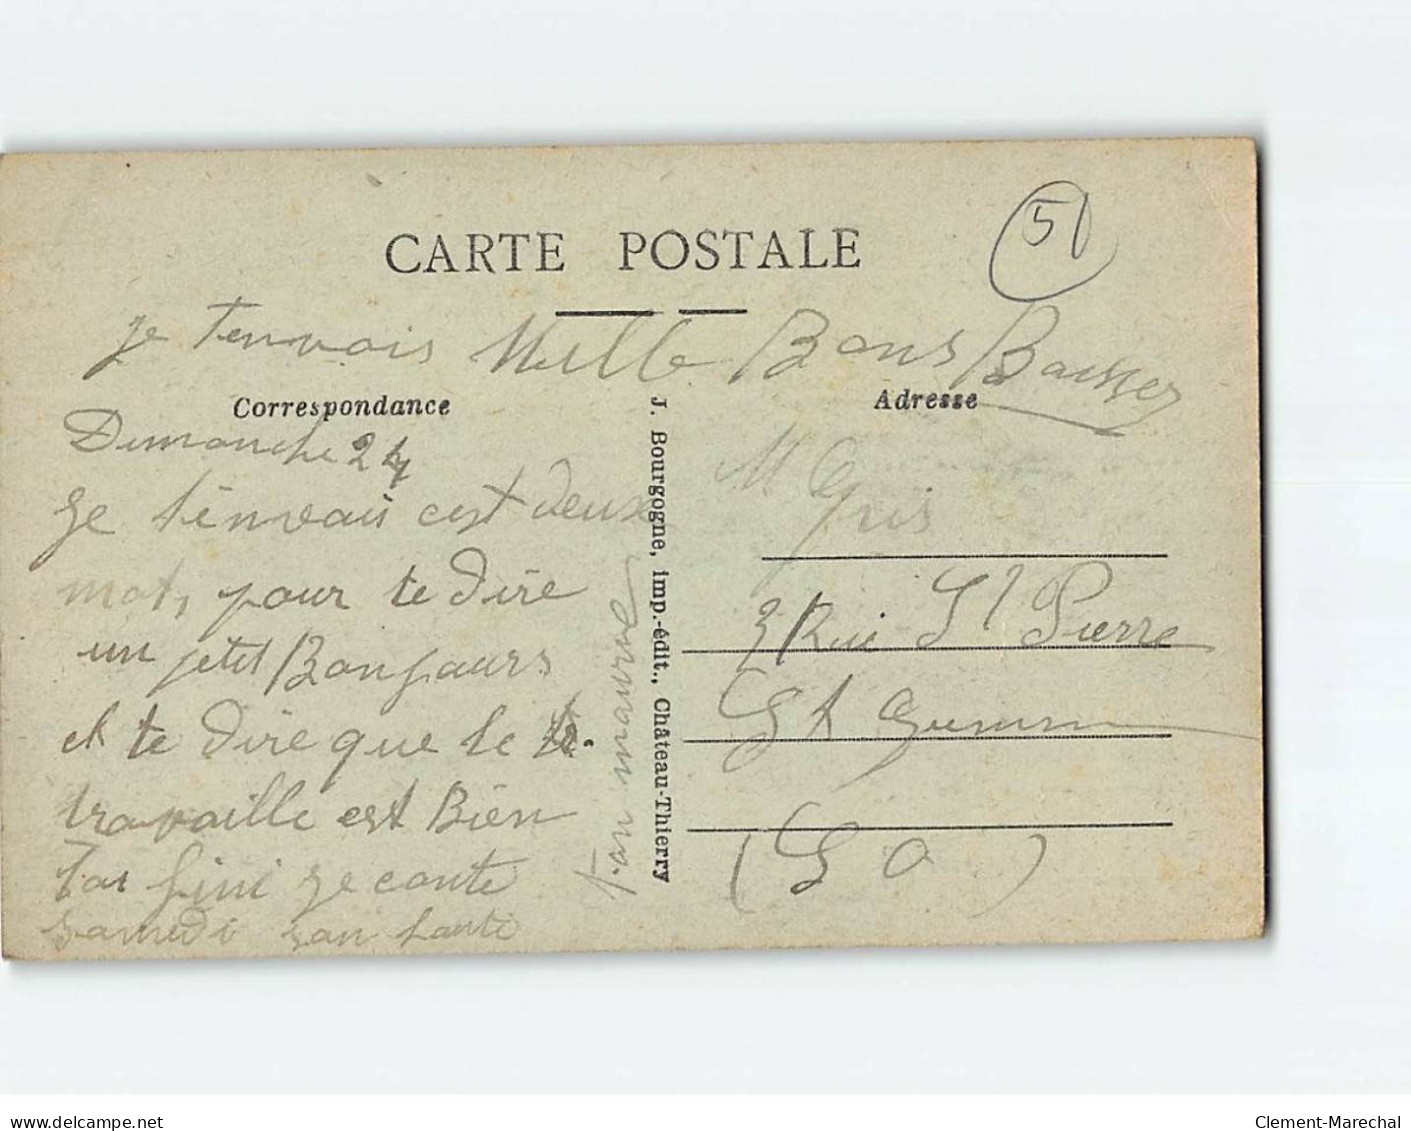 CARTE POSTALE
51
je tenvois Mille Bons Baisser
Correspondance
Dimanche 24
ge t'envais cest deux
mot, pour te dire
un petit Bonjaurs
et te dire que le
travaille est Bien
fini ge conte
samedi san faute
ton
J. Bourgogne, imp.-édit., Château-Thierry
Adresse
M Gris
3 Rue St Pierre
St
(S O)
delcampe.net
Clement-Marechal